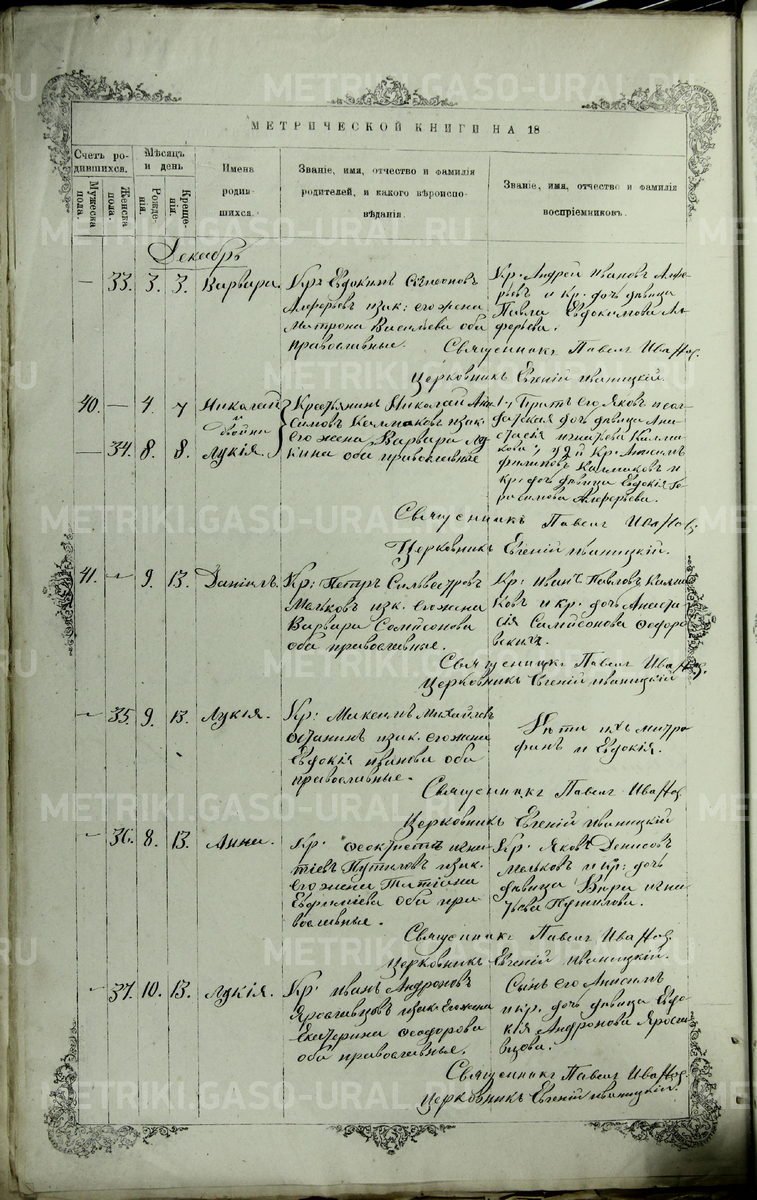 МЕТРИЧЕСКОЙ КНИГИ НА 18
Счетъ родившихся.
Мужеска пола.
Женска пола.
Мѣсяцъ и день
Рожденія.
Крещенія.
Имена родившихся.
Званіе, имя, отчество и фамилія родителей, и какого вѣроисповѣданія.
Званіе, имя, отчество и фамилія воспріемниковъ.
Декабрь
— 33. 3. 3. Варвара.
Кр: Евдокимъ
Алферьевъ и зак: его жена
Матрона Васильева оба
православные.
Кр. Андрей Ивановъ Алфе
рьевъ и кр. дочь девица
Павла Евдокимова Ал
ферьева.
Священникъ Павелъ Ивановъ.
Церковникъ Евгеній Иваницкій.
40. — 4. 7 Николай
и двойни
— 34. 8. 8. Лукія.
Крестьянинъ Николай Ани
симовъ Калмаковъ и зак.
его жена Варвара Лу
кина оба православные
Братъ его Яковъ и сол
датская дочь девица Ана
стасія Игнатова Калма
кова; у 2й Кр. Анисимъ
Филиповъ Калмаковъ и
кр. дочь девица Евдокія Ге
расимова Алферьева.
Священникъ Павелъ Ивановъ.
Церковникъ Евгеній Иваницкій.
41. — 9. 13. Даніилъ.
Кр: Петръ Сильвестровъ
зак. его жена
Варвара Самсонова
оба православные.
Кр: Иванъ Павловъ Калма
ковъ и кр. дочь Анаста
сія Самсонова Ѳедоро
Священникъ Павелъ Ивановъ.
Церковникъ Евгеній Иваницкій
— 35. 9. 13. Лукія.
Кр: Максимъ Михайловъ
Останинъ и зак. его жена
Евдокія Иванова оба
православные.
Дѣти ихъ Митро
фанъ и Евдокія.
Священникъ Павелъ Ивановъ.
Церковникъ Евгеній Иваницкій
— 36. 8. 13. Анна.
Кр: Ѳеоктистъ Игна
тіевъ Путиловъ и зак.
его жена Татіана
Евфиміева оба пра
вославные.
Кр. Яковъ Денисовъ
Мальковъ и кр: дочь
девица Вѣра Игна
тьева Путилова.
Священникъ Павелъ Ивановъ.
Церковникъ Евгеній Иваницкій.
— 37. 10. 13. Лукія.
Кр: Иванъ Андроновъ
Ярославцовъ и зак. его жена
Екатерина Ѳеодорова
оба православные.
Сынъ его Анисимъ
и кр. дочь девица Евдо
кія Андронова Яросла
вцова.
Священникъ Павелъ Ивановъ.
Церковникъ Евгеній Иваницкій.
METRIKI.GASO-URAL.RU